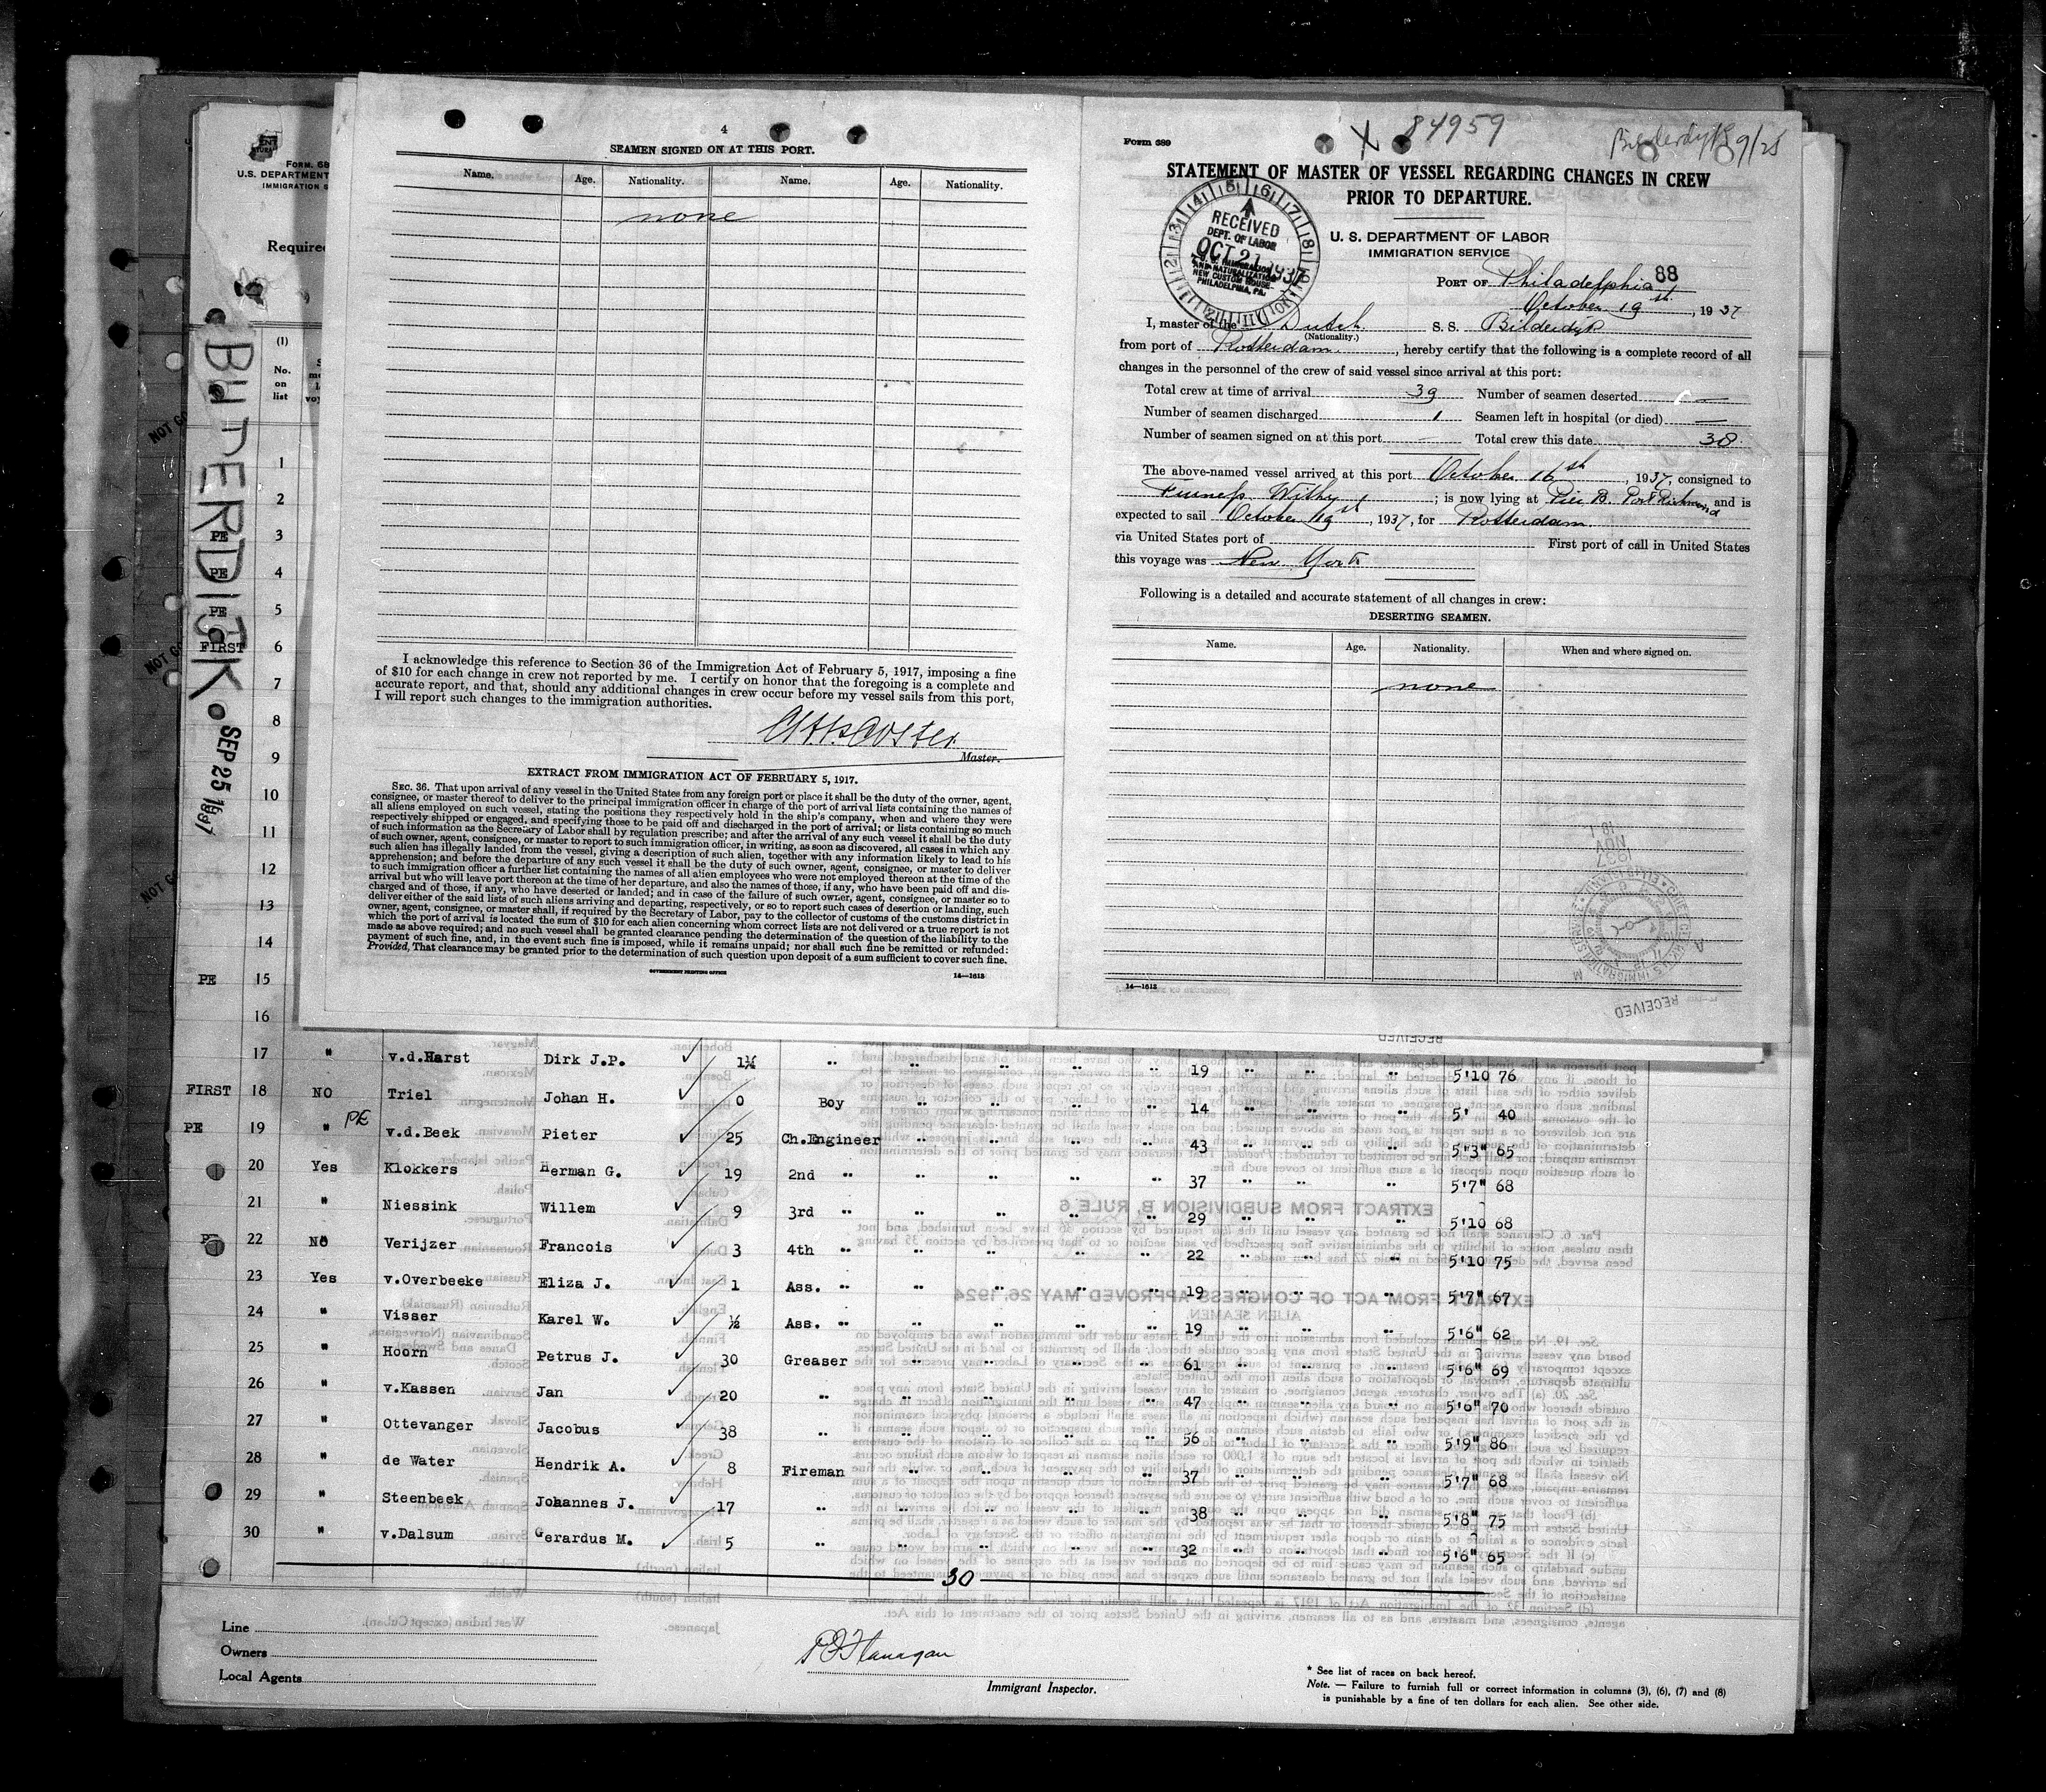 4
SEAMEN SIGNED ON AT THIS PORT.
Name. Age. Nationality. Name. Age. Nationality.
none
I acknowledge this reference to Section 36 of the Immigration Act of February 5, 1917, imposing a fine
of $10 for each change in crew not reported by me. I certify on honor that the foregoing is a complete and
accurate report, and that, should any additional changes in crew occur before my vessel sails from this port,
I will report such changes to the immigration authorities.
Master.
EXTRACT FROM IMMIGRATION ACT OF FEBRUARY 5, 1917.
SEC. 36. That upon arrival of any vessel in the United States from any foreign port or place it shall be the duty of the owner, agent,
consignee, or master thereof to deliver to the principal immigration officer in charge of the port of arrival lists containing the names of
all aliens employed on such vessel, stating the positions they respectively hold in the ship's company, when and where they were
respectively shipped or engaged, and specifying those to be paid off and discharged in the port of arrival; or lists containing so much
of such information as the Secretary of Labor shall by regulation prescribe; and after the arrival of any such vessel it shall be the duty
of such owner, agent, consignee, or master to report to such immigration officer, in writing, as soon as discovered, all cases in which any
such alien has illegally landed from the vessel, giving a description of such alien, together with any information likely to lead to his
apprehension; and before the departure of any such vessel it shall be the duty of such owner, agent, consignee, or master to deliver
to such immigration officer a further list containing the names of all alien employees who were not employed thereon at the time of the
arrival but who will leave port thereon at the time of her departure, and also the names of those, if any, who have been paid off and dis-
charged and of those, if any, who have deserted or landed; and in case of the failure of such owner, agent, consignee, or master so to
deliver either of the said lists of such aliens arriving and departing, respectively, or so to report such cases of desertion or landing, such
owner, agent, consignee, or master shall, if required by the Secretary of Labor, pay to the collector of customs of the customs district in
which the port of arrival is located the sum of $10 for each alien concerning whom correct lists are not delivered or a true report is not
made as above required; and no such vessel shall be granted clearance pending the determination of the question of the liability to the
payment of such fine, and, in the event such fine is imposed, while it remains unpaid; nor shall such fine be remitted or refunded:
Provided, That clearance may be granted prior to the determination of such question upon deposit of a sum sufficient to cover such fine.
GOVERNMENT PRINTING OFFICE 14—1613
Form 689
X 84959
Bilderdyk 9/25
STATEMENT OF MASTER OF VESSEL REGARDING CHANGES IN CREW
PRIOR TO DEPARTURE.
U. S. DEPARTMENT OF LABOR
IMMIGRATION SERVICE
RECEIVED
DEPT. OF LABOR
OCT 21 1937
NEW CUSTOM HOUSE
PHILADELPHIA, PA.
PORT OF Philadelphia 88
October 19th, 1937
I, master of the Dutch S. S. Bilderdijk
(Nationality.)
from port of Rotterdam, hereby certify that the following is a complete record of all
changes in the personnel of the crew of said vessel since arrival at this port:
Total crew at time of arrival 39 Number of seamen deserted —
Number of seamen discharged 1 Seamen left in hospital (or died) —
Number of seamen signed on at this port — Total crew this date 38.
The above-named vessel arrived at this port October 16th, 1937, consigned to
Furness Withy; is now lying at Pier B. Port Richmond and is
expected to sail October 19th, 1937, for Rotterdam
via United States port of First port of call in United States
this voyage was New York
Following is a detailed and accurate statement of all changes in crew:
DESERTING SEAMEN.
Name. Age. Nationality. When and where signed on.
none
14—1613
U.S. DEPARTMENT
Require
BILDERDIJK SEP 25 1937
(1)
No.
on
list
1
2
PE 3
PE 4
PE 5
FIRST 6
7
8
9
10
11
12
13
14
PE 15
16
17 " v.d.Harst Dirk J.P. 1½ " " " " " 19 " " " 5'10 76
FIRST 18 NO Triel Johan H. 0 Boy " " " " 14 " " " 5' 40
PE 19 " PE v.d.Beek Pieter 25 Ch.Engineer " " " " 43 " " " 5'3" 65
20 Yes Klokkers Herman G. 19 2nd " " " " " 37 " " " 5'7" 68
21 " Niessink Willem 9 3rd " " " " " 29 " " " 5'10 68
PE 22 NO Verijzer Francois 3 4th " " " " " 22 " " " 5'10 75
23 Yes v.Overbeeke Eliza J. 1 Ass. " " " " " 19 " " " 5'7" 67
24 " Visser Karel W. ½ Ass. " " " " " 19 " " " 5'6" 62
25 " Hoorn Petrus J. 30 Greaser " " " " 61 " " " 5'6" 69
26 " v.Kassen Jan 20 " " " " " 47 " " " 5'6" 70
27 " Ottevanger Jacobus 38 " " " " " 56 " " " 5'9" 86
28 " de Water Hendrik A. 8 Fireman " " " " 37 " " " 5'7" 68
29 " Steenbeek Johannes J. 17 " " " " " 38 " " " 5'8" 75
30 " v.Dalsum Gerardus M. 5 " " " " " 32 " " " 5'6" 65
30
Line
Owners
Local Agents
Flanagan
Immigrant Inspector.
* See list of races on back hereof.
Note. — Failure to furnish full or correct information in columns (3), (6), (7) and (8)
is punishable by a fine of ten dollars for each alien. See other side.